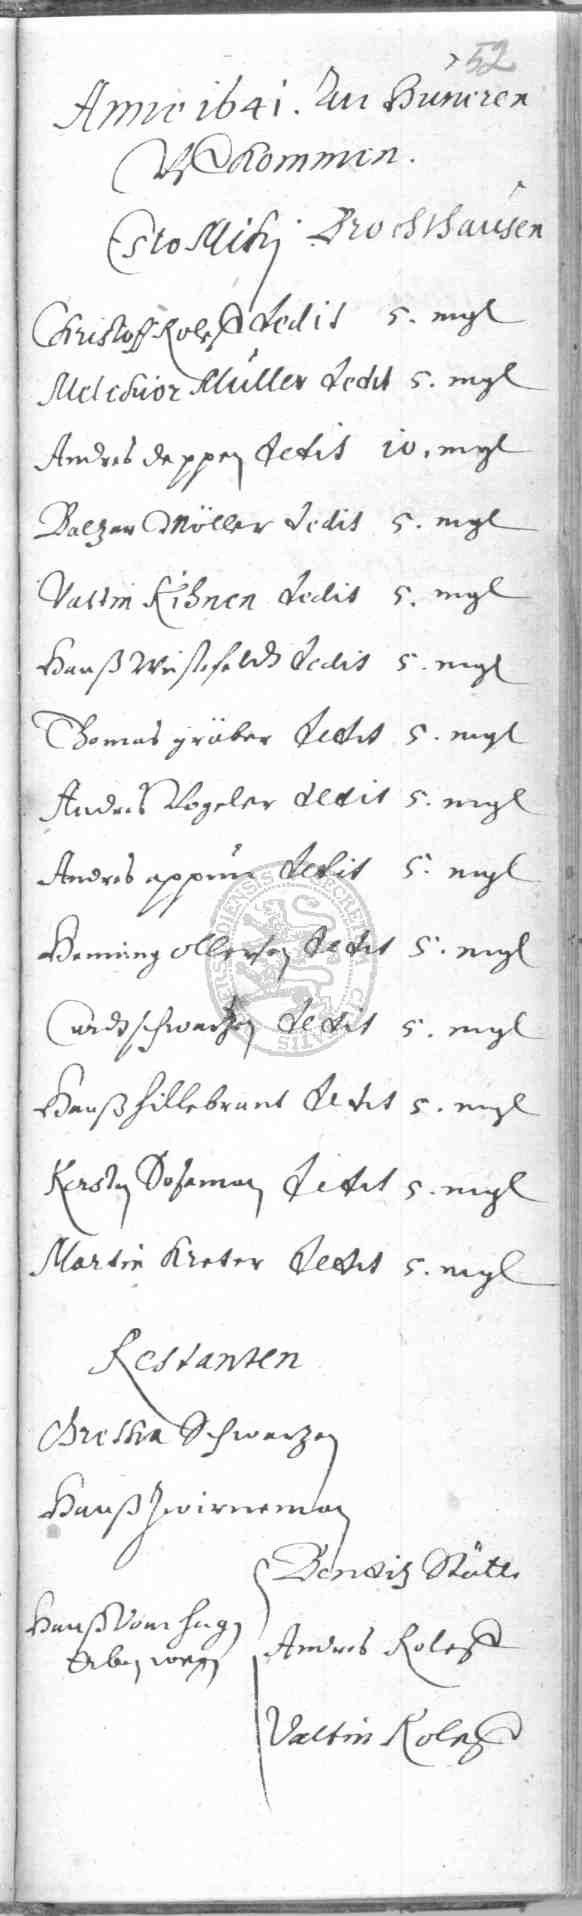 52
Anno 1641. An Hüneren
Vf Kommen.
Sto Mich: Brochthausen
Christoff Rolef dedit 5. mgl
Melchior Müller dedit 5. mgl
Andres deppen dedit 10. mgl
Baltzer Möller dedit 5. mgl
Valtin Kihnen dedit 5. mgl
Hanß Wüstefeldt dedit 5. mgl
Thomas gröber dedit 5. mgl
Andres Vogeler dedit 5. mgl
Andres dedit 5. mgl
Henning dedit 5. mgl
Curdt schwartzen dedit 5. mgl
Hanß hillebrant dedit 5. mgl
Kersten Doseman dedit 5. mgl
Martin Kreter dedit 5. mgl
Restanten
Schwartzen
Hanß Zwirneman
Hanß Vom hagen
erben wegen
Andres Kolef
Valtin Kolef